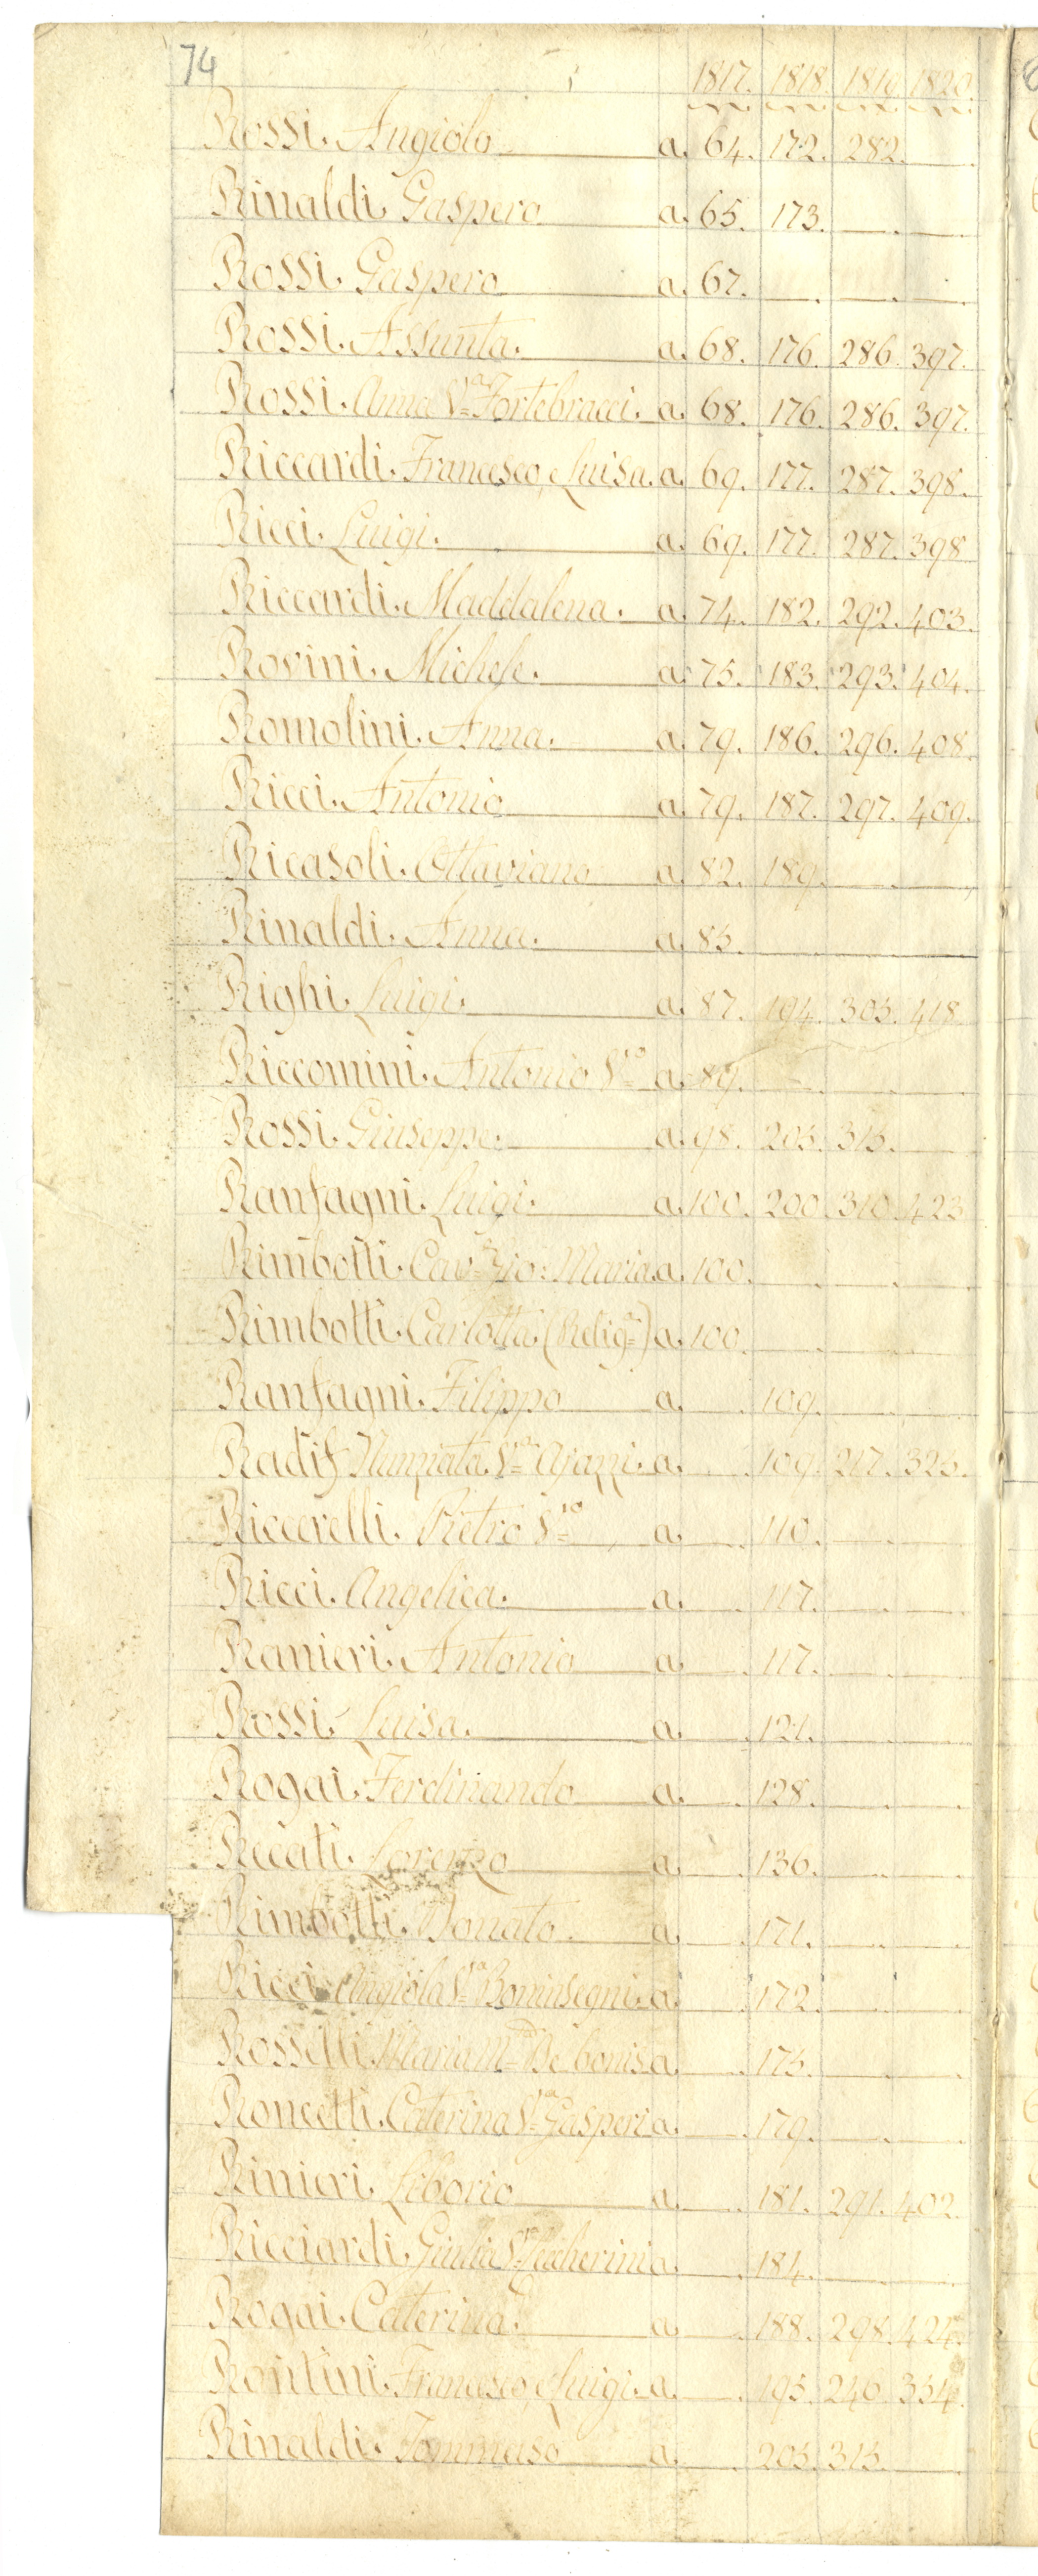 74
1817. 1818. 1819. 1820.
Rossi. Angiolo a. 64. 172. 282.
Rinaldi. Gaspero a. 65. 173.
Rossi. Gaspero a. 67.
Rossi. Assunta. a. 68. 176. 286. 397.
Rossi. Anna Va Fortebracci. a. 68. 176. 286. 397.
Riccardi. Francesco, Luisa. a. 69. 177. 287. 398.
Ricci. Luigi. a. 69. 177. 287. 398
Riccardi. Maddalena. a. 74. 182. 292. 403.
Rovini. Michele. a. 75. 183. 293. 404.
Romolini. Anna. a. 79. 186. 296. 408.
Ricci. Antonio a. 79. 187. 297. 409.
Ricasoli. Ottaviano a. 82. 189.
Rinaldi. Anna. a. 85.
Righi. Luigi. a. 87. 194. 305. 418
Riccomini. Antonio Sro a. 89.
Rossi. Giuseppe. a. 98. 205. 315.
Ranfagni. Luigi. a. 100. 200. 310. 423
Rimbotti. Cav. Gio: Maria a. 100.
Rimbotti. Carlotta. (Religa) a. 100.
Ranfagni. Filippo a. 109.
Nunziata. Va Ajazzi. a. 109. 217. 325.
Riccerelli. Pietro Sro a. 110.
Ricci. Angelica. a. 117.
Ranieri. Antonio a. 117.
Rossi. Luisa. a. 121.
Rogai. Ferdinando a. 128.
Recati. Lorenzo a. 136.
Rimbotti. Donato. a. 171.
Ricci. Angiola Va Boninsegni. a. 172.
Rosselli. Maria De bonis a. 175.
Roncetti. Caterina Va Gasperi a. 179.
Rinieri. Liborio a. 181. 291. 402.
Ricciardi. Giulia Va a. 184.
Rogai. Caterina. a. 188. 298. 424.
Rontini. Francesco, Luigi. a. 195. 240. 354.
Rinaldi. Tommaso a. 205. 315.